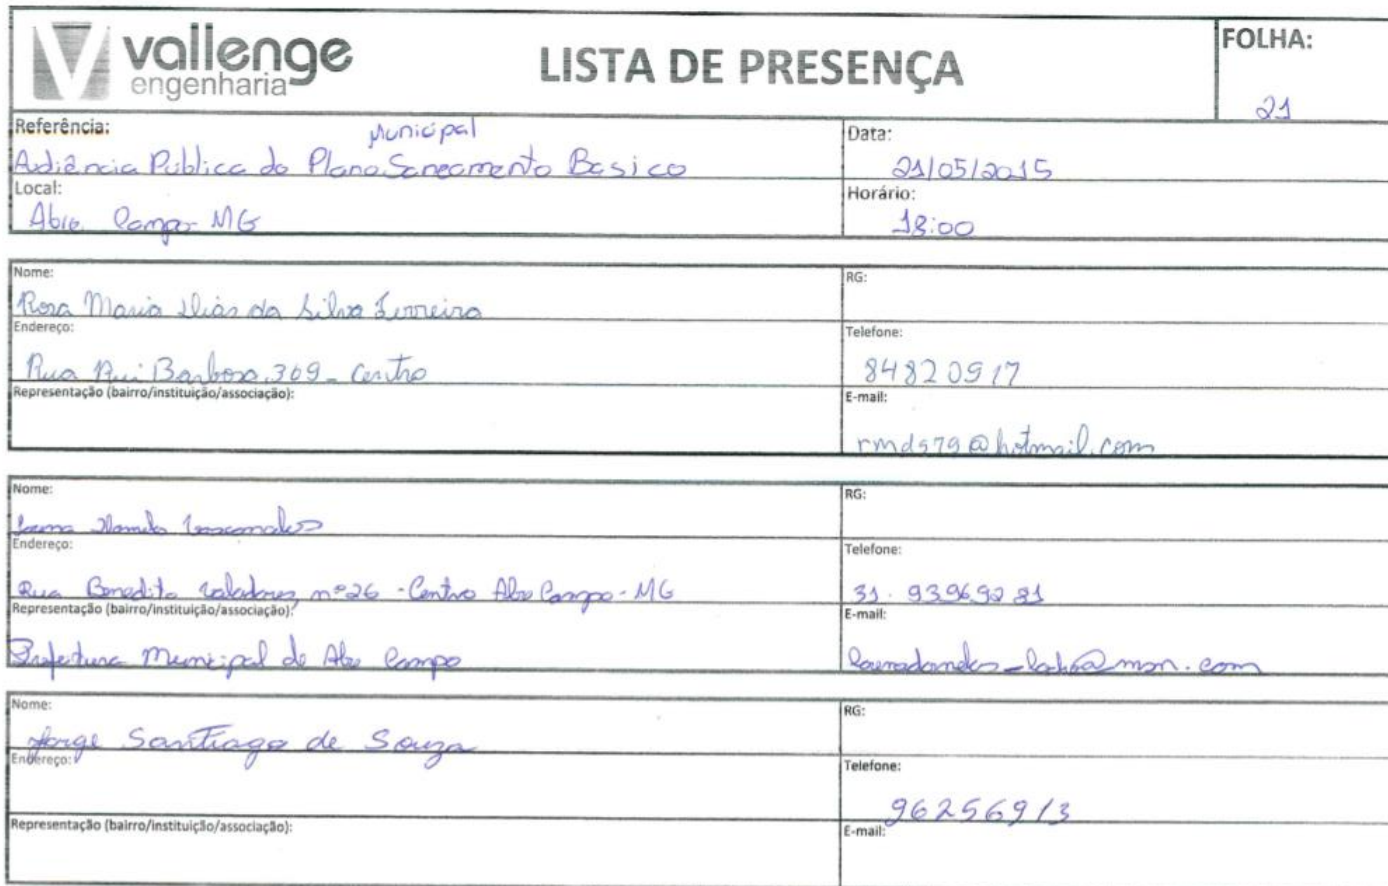 vallenge
engenharia
LISTA DE PRESENÇA
FOLHA:
21
Referência:
Municipal
Audiência Pública do Plano Saneamento Basico
Data:
21/05/2015
Local:
Abre Campo - MG
Horário:
18:00
Nome:
Rosa Maria Dias da Silva Ferreira
RG:
Endereço:
Rua Rui Barbosa, 369 - Centro
Telefone:
84820917
Representação (bairro/instituição/associação):
E-mail:
rmds79@hotmail.com
Nome:
RG:
Endereço:
Rua Benedito Valadares, nº 26 - Centro Abre Campo - MG
Telefone:
31. 93969281
Representação (bairro/instituição/associação):
Prefeitura Municipal de Abre Campo
E-mail:
Nome:
Jorge Santiago de Souza
RG:
Endereço:
Telefone:
96256913
Representação (bairro/instituição/associação):
E-mail: